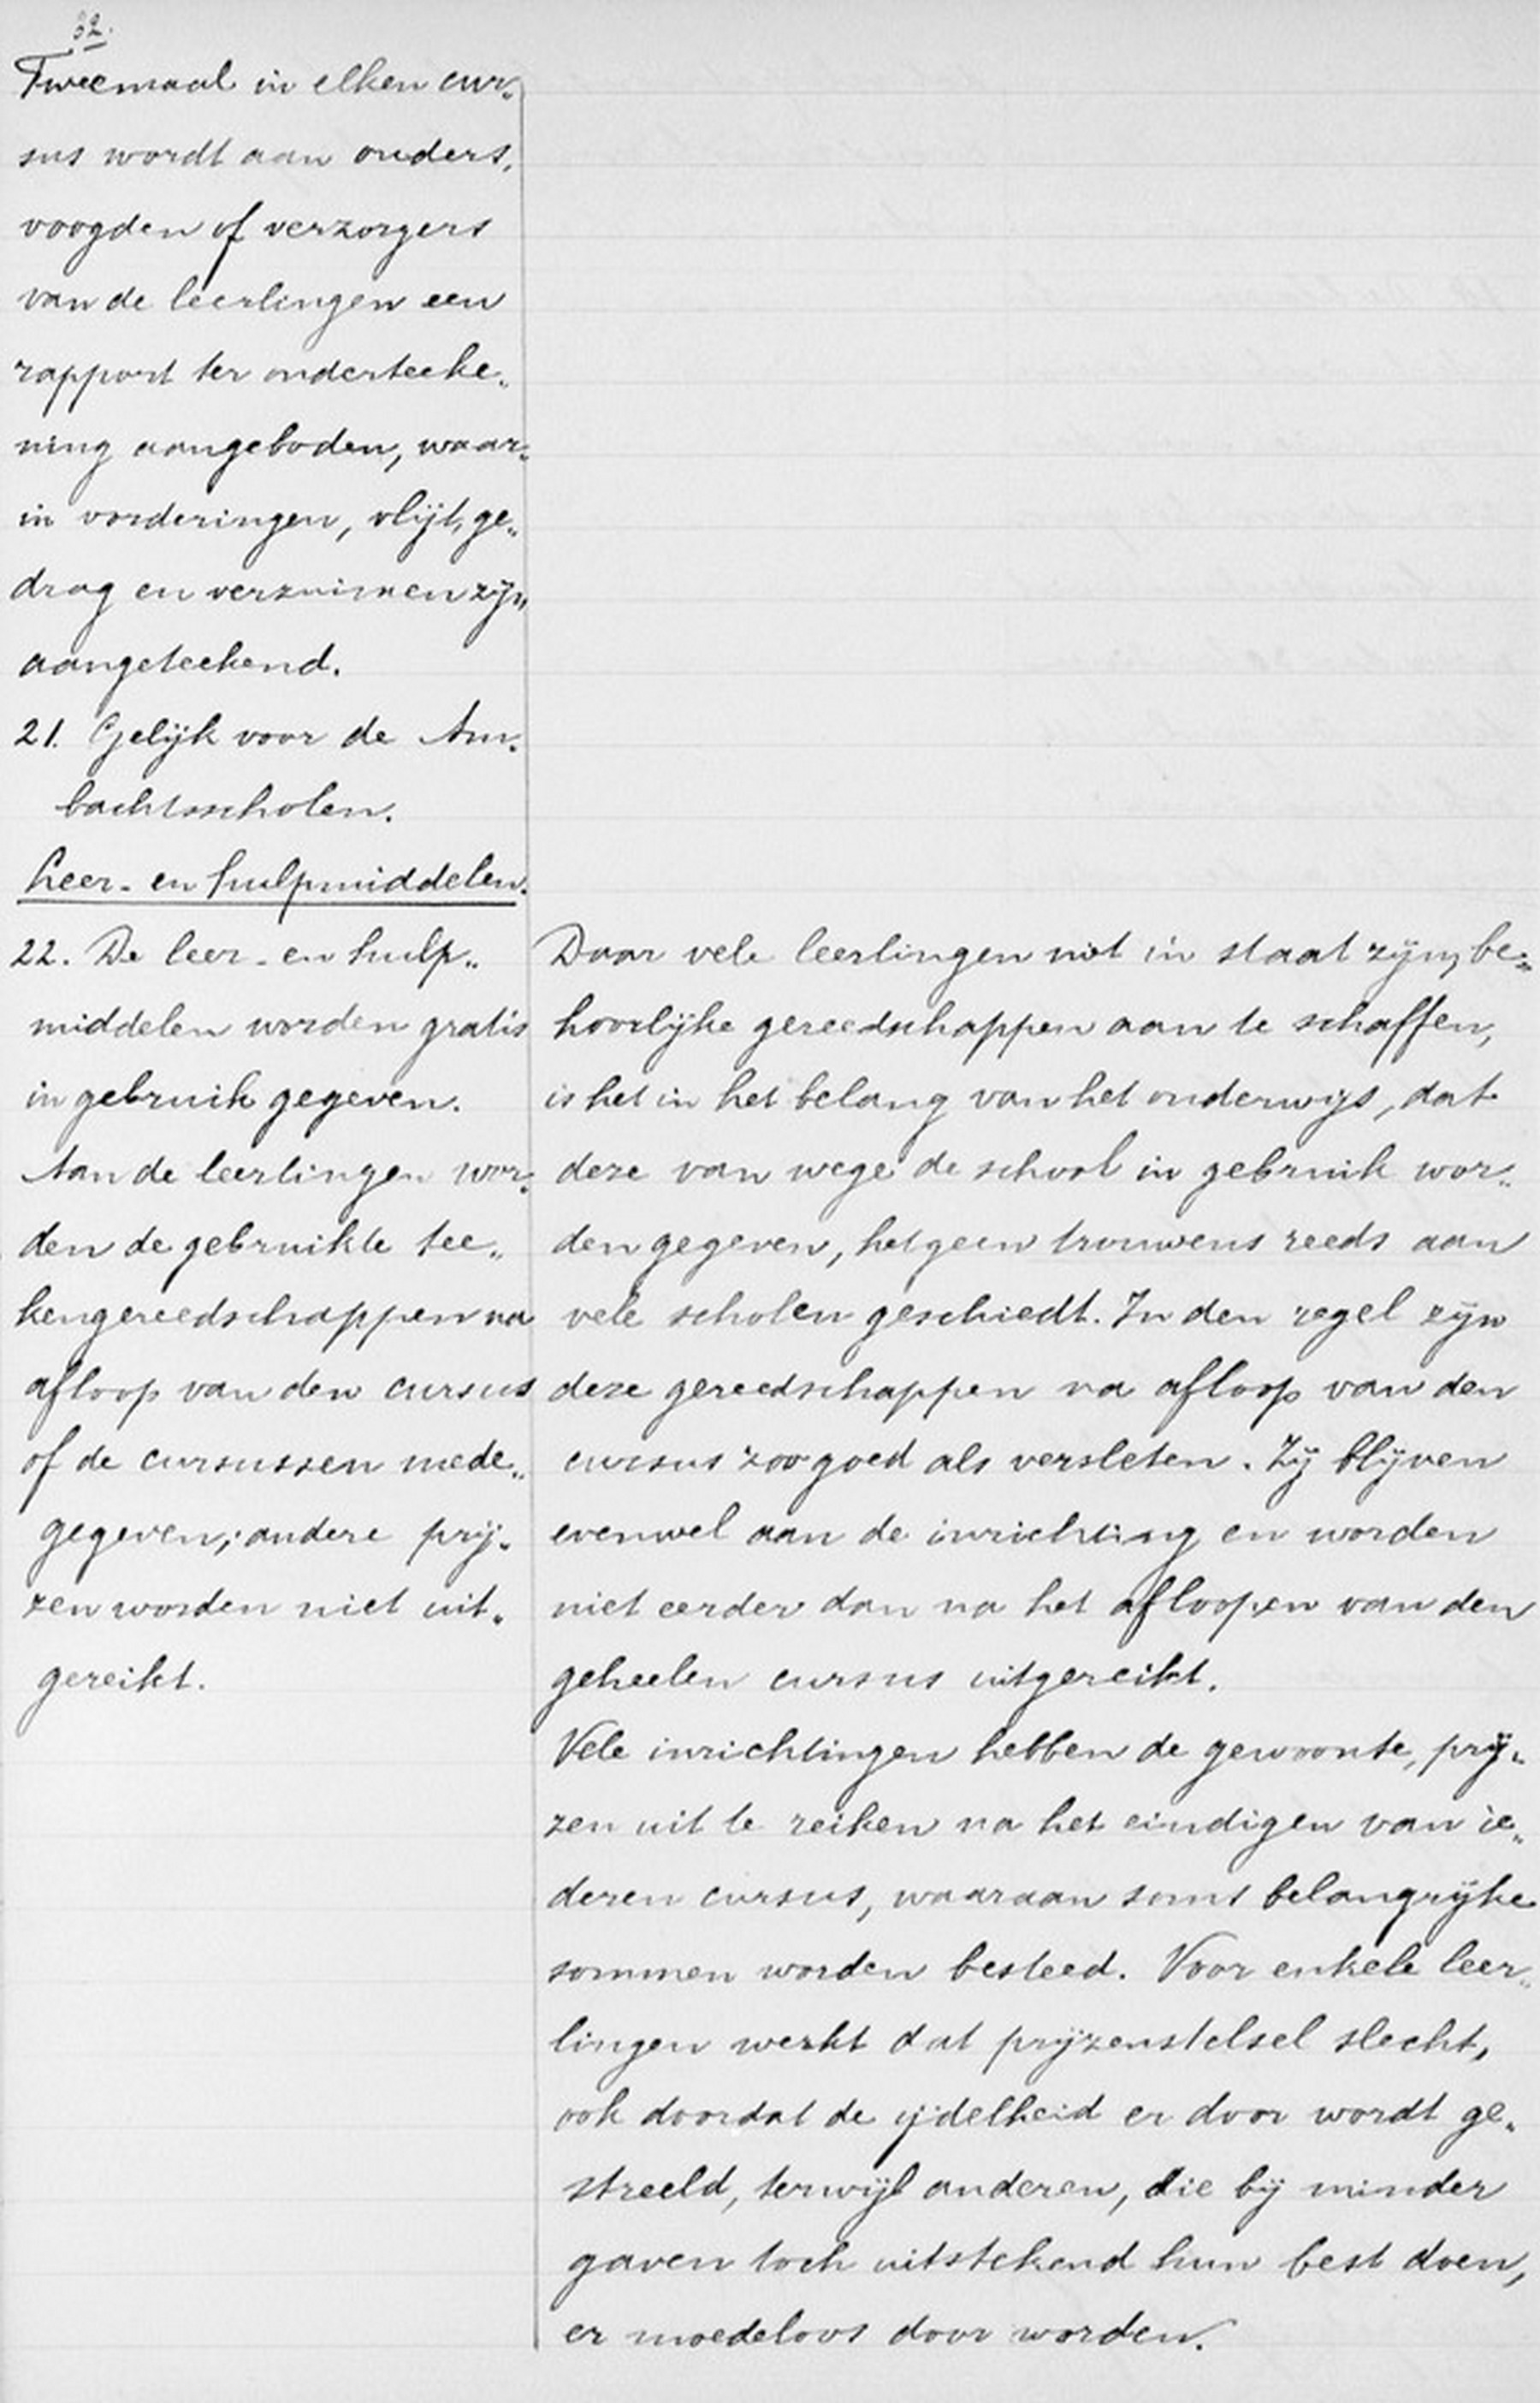 32.
Tweemaal in elken cur„
sus wordt aan ouders,
voogden of verzorgers
van de leerlingen een
rapport ter onderteeke„
ning aangeboden, waar„
in vorderingen, vlijt, ge„
drag en verzuimen zijn
aangeteekend.
21. Gelijk voor de Am„
bachtsscholen.
Leer- en hulpmiddelen.
22. De leer- en hulp„
middelen worden gratis
in gebruik gegeven.
Aan de leerlingen wor„
den de gebruikte tee„
kengereedschappen na
afloop van den cursus
of de cursussen mede„
gegeven; andere prij„
zen worden niet uit„
gereikt.
Daar vele leerlingen niet in staat zijn, be„
hoorlijke gereedschappen aan te schaffen,
is het in het belang van het onderwijs, dat
deze van wege de school in gebruik wor„
den gegeven, hetgeen trouwens reeds aan
vele scholen geschiedt. In den regel zijn
deze gereedschappen na afloop van den
cursus zoo goed als versleten. Zij blijven
evenwel aan de inrichting en worden
niet eerder dan na het afloopen van den
geheelen cursus uitgereikt.
Vele inrichtingen hebben de gewoonte, prij„
zen uit te reiken na het eindigen van ie„
deren cursus, waaraan soms belangrijke
sommen worden besteed. Voor enkele leer„
lingen werkt dat prijzenstelsel slecht,
ook doordat de ijdelheid er door wordt ge„
streeld, terwijl anderen, die bij minder
gaven toch uitstekend hun best doen,
er moedeloos door worden.